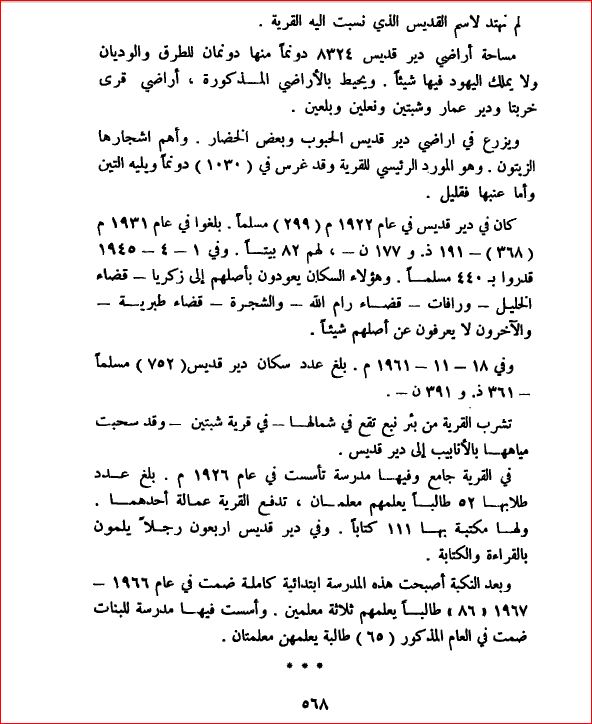 لم نهتد لاسم القديس الذي نسبت اليه القرية .
مساحة أراضي دير قديس ٨٣٢٤ دونماً منها دونمان للطرق والوديان
ولا يملك اليهود فيها شيئاً . ويحيط بالأراضي المـذكورة ، أراضي قرى
خربتا ودير عمار وشبتين ونعلين وبلعين .
ويزرع في اراضي دير قديس الحبوب وبعض الخضار . وأهم اشجارها
الزيتون . وهو المورد الرئيسي للقرية وقد غرس في ( ١٠٣٠ ) دونماً ويليه التين
وأما عنبها فقليل .
كان في دير قديس في عام ١٩٢٢ م ( ٢٩٩ ) مسلماً . بلغوا في عام ١٩٣١ م
( ٣٦٨ ) – ١٩١ ذ. و ١٧٧ ن – ، لهم ٨٢ بيتـاً . وفي ١ – ٤ – ١٩٤٥
قدروا بـ ٤٤٠ مسلمـاً . وهؤلاء السكان يعودون بأصلهم إلى زكريا – قضاء
الخليـل – ورافات – قضـاء رام الله – والشجرة – قضاء طبريـة –
والآخرون لا يعرفون عن أصلهم شيئاً .
وفي ١٨ – ١١ – ١٩٦١ م . بلغ عدد سكان دير قديس ( ٧٥٢ ) مسلماً
– ٣٦١ ذ. و ٣٩١ ن – .
تشرب القرية من بئر نبع تقع في شمالهـا – في قرية شبتين – وقد سحبت
مياههـا بالأنابيب إلى دير قديس .
في القرية جامع وفيهـا مدرسة تأسست في عام ١٩٢٦ م . بلغ عـدد
طلابهـا ٥٢ طالبـاً يعلمهم معلمـان ، تدفـع القرية عمـالة أحدهمـا .
ولهـا مكتبة بهـا ١١١ كتاباً . وفي دير قديس اربعون رجـلاً يلمون
بالقراءة والكتابة .
وبعد النكبة أصبحت هذه المدرسة ابتدائية كاملـة ضمت في عام ١٩٦٦ –
١٩٦٧ « ٨٦ » طالبـاً يعلمهم ثلاثة معلمين . وأسست فيهـا مدرسة للبنات
ضمت في العام المذكور ( ٦٥ ) طالبة يعلمهن معلمتان .
* * *
٥٦٨